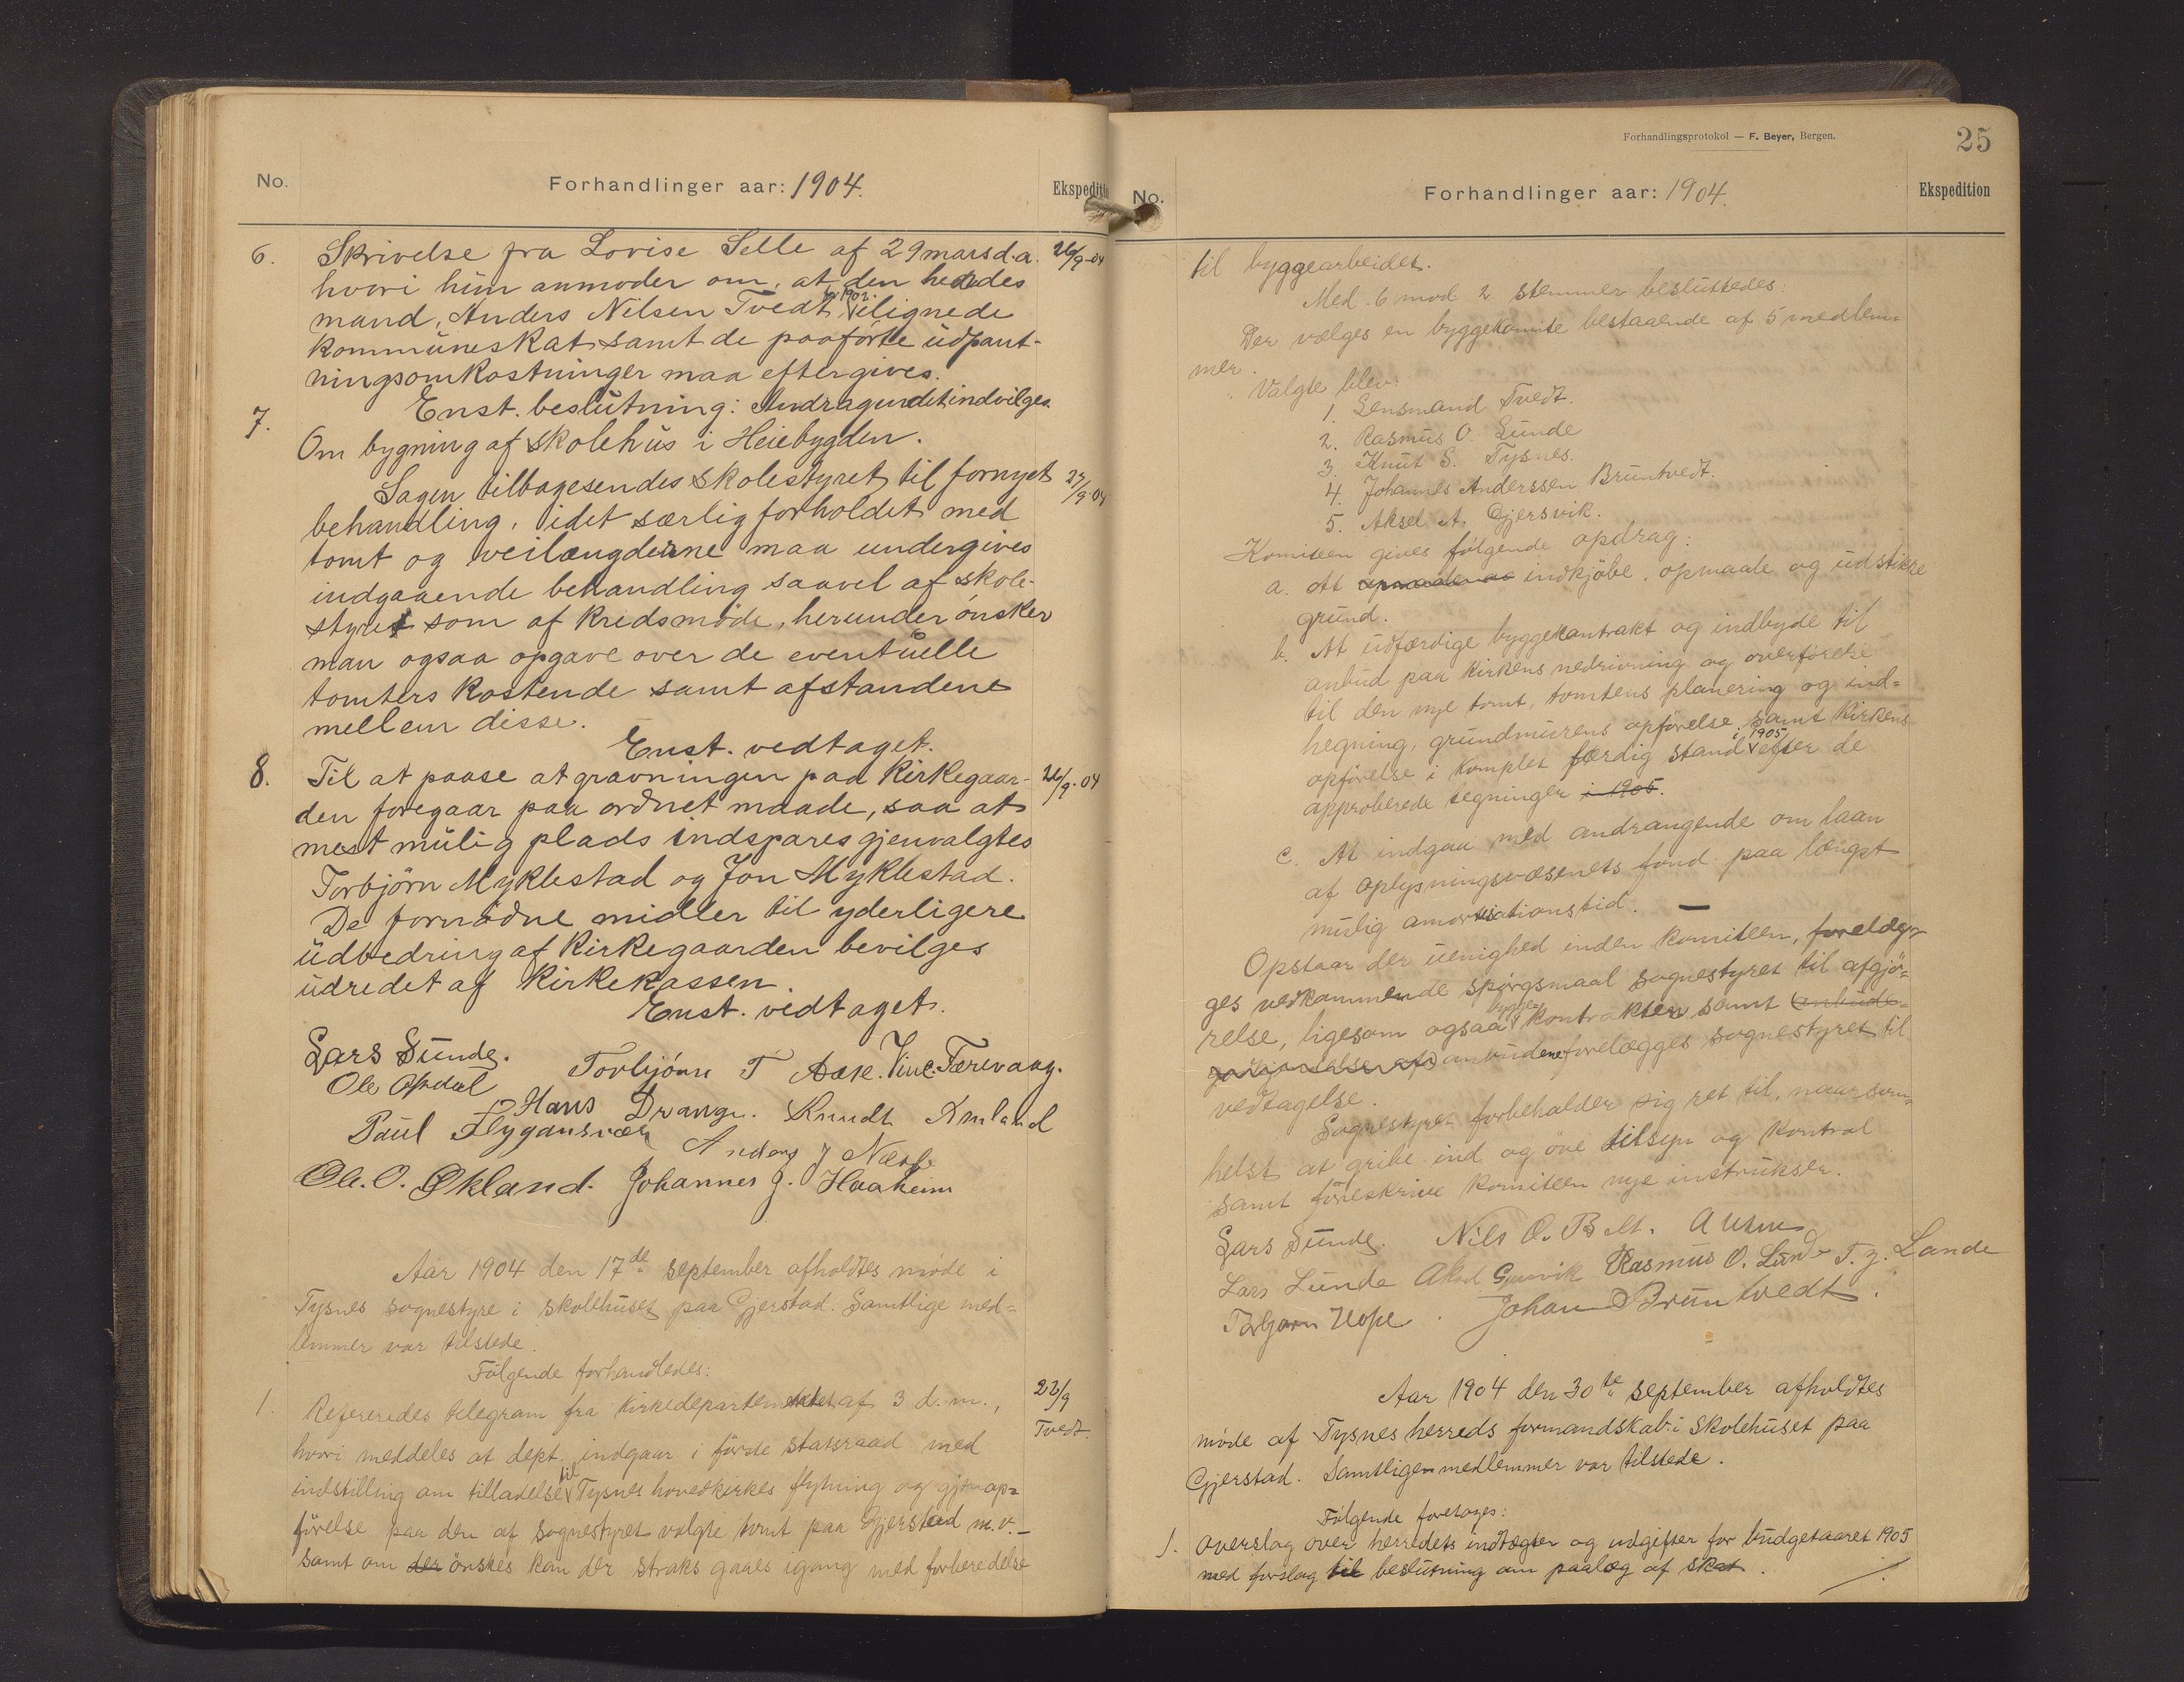 No.
Forhandlinger aar: 1904.
Ekspediti
6. Skrivelse fra Lovise Selle af 29 mars d.a. 26/9-04
hvori hun anmoder om, at den hendes
mand, Anders Nilsen Tvedt, for 1902 ilignede
kommuneskat samt de paaförte udpant-
ningsomkostninger maa eftergives.
Enst. beslutning: Andragendet indvilges.
7. Om bygning af skolehus i Heiebygden.
Sagen tilbagesendes skolestyret til fornyet 27/9-04
behandling, idet særlig forholdet med
tomt og veilængderne maa undergives
indgaaende behandling saavel af skole-
styret som af kredsmöde, herunder önsker
man ogsaa opgave over de eventuelle
tomters kostende samt afstandene
mellem disse.
Enst. vedtaget.
8. Til at paase at gravningen paa kirkegaar- 26/9-04
den foregaar paa ordnet maade, saa at
mest mulig plads indspares gjenvalgtes
Torbjörn Myklestad og Jon Myklestad.
De fornödne midler til yderligere
udbedring af kirkegaarden bevilges
udredet af kirkekassen.
Enst. vedtaget.
Lars Sunde. Torbjörn T Aase. Vinc. Færevaag.
Ole Opdal Hans Drange. Knudt Amland
Paul Flygansvær Anders J Næsse
Ole. O. Økland. Johannes J. Haaheim
Aar 1904 den 17de september afholdtes möde i
Tysnes sognestyre i skolehuset paa Gjerstad. Samtlige med=
lemmer var tilstede.
Fölgende forhandledes:
1. Refereredes telegram fra Kirkedepartementet af 3 d.m., 22/9
hvori meddeles at dept. indgaar i förste statsraad med Tvedt.
indstilling om tilladelse til Tysnes hovedkirkes flytning og gjenop=
förelse paa den af sognestyret valgte tomt paa Gjerstad m.v. –
samt om der önskes kan der straks gaaes igang med forberedelse
Forhandlingsprotokol — F. Beyer, Bergen.
25
No.
Forhandlinger aar: 1904.
Ekspedition
til byggearbeidet.
Med 6 mod 2 stemmer besluttedes:
Der vælges en byggekomite bestaaende af 5 medlem=
mer.
Valgte blev:
1. Lensmand Tvedt.
2. Rasmus O. Lunde
3. Knut S. Tysnes.
4. Johannes Anderssen Bruntvedt.
5. Aksel A. Gjersvik.
Komiteen gives fölgende opdrag:
a. At indkjöbe, opmaale og udstikke
grund.
b. At udfærdige byggekontrakt og indbyde til
anbud paa kirkens nedrivning og overförelse
til den nye tomt, tomtens planering og ind=
hegning, grundmurens opförelse, samt kirkens
opförelse i komplet færdig stand i 1905 efter de
approberede tegninger i 1905.
c. At indgaa med andragende om laan
af oplysningsvæsenets fond paa længst
mulig amortisationstid. —
Opstaar der uenighed inden komiteen, forelæg=
ges vedkommende spörgsmaal sognestyret til afgjö=
relse, ligesom ogsaa byggekontrakten samt anbude-
godkjendelse af anbudene forelægges sognestyret til
vedtagelse.
Sognestyret forbeholder sig ret til, naarsom=
helst at gribe ind og öve tilsyn og kontrol
samt foreskrive komiteen nye instrukser.
Lars Sunde. Nils O. Belt.
Lars Lunde Aksel Gjersvik Rasmus O. Lunde T. J. Lande
Torbjørn Hope. Johan Bruntvedt.
Aar 1904 den 30te september afholdtes
möde af Tysnes herreds formandskab i skolehuset paa
Gjerstad. Samtlige medlemmer var tilstede.
Fölgende foretoges:
1. Overslag over herredets indtægter og udgifter for budgetaaret 1905
med forslag til beslutning om paalæg af skat.